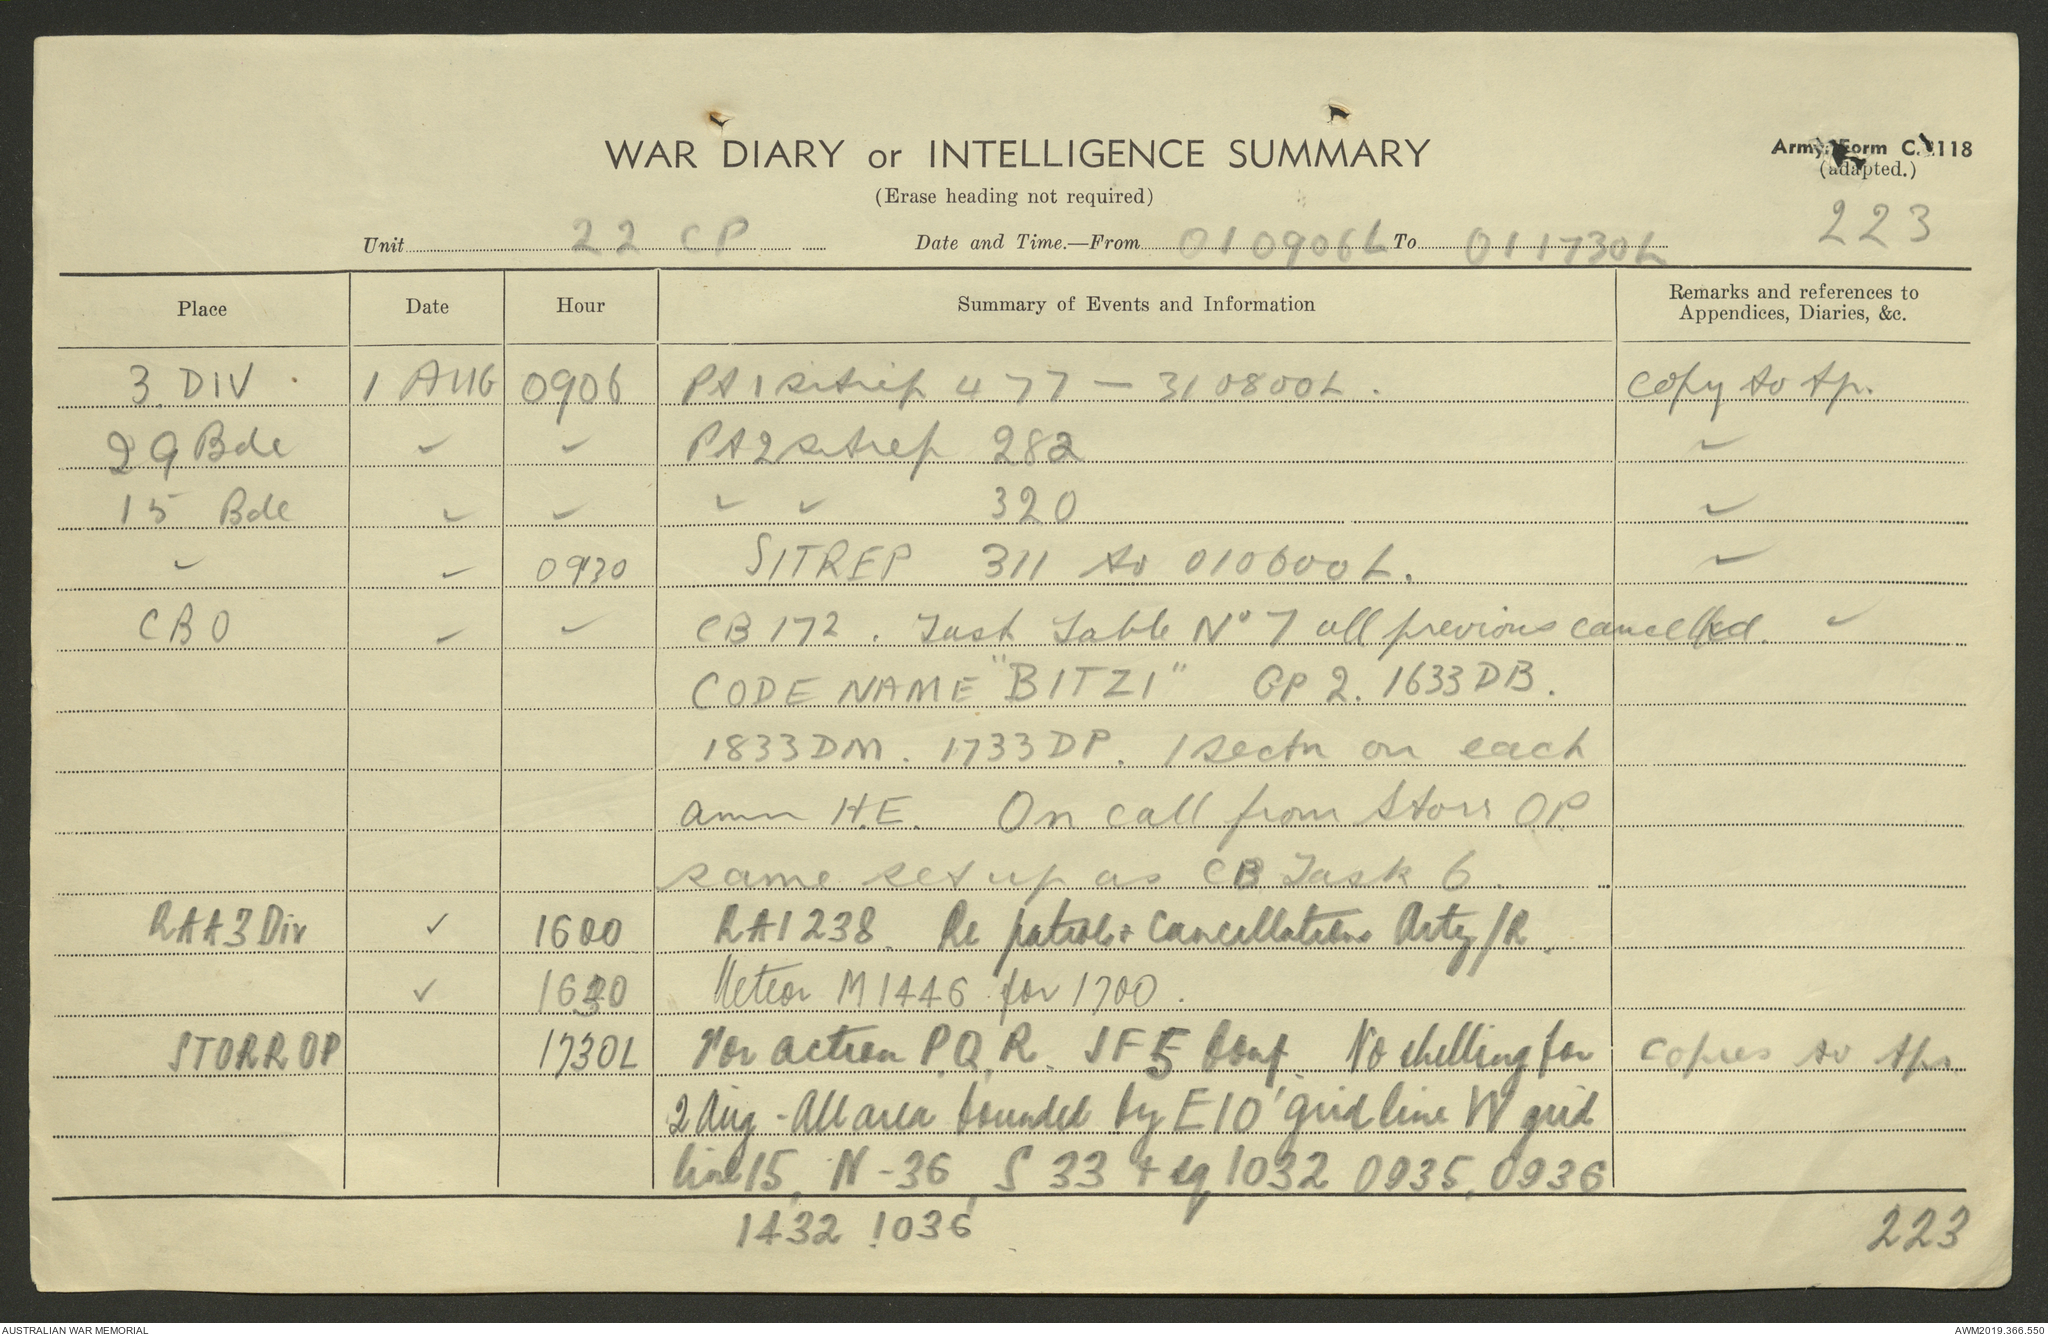 WAR DIARY or INTELLIGENCE SUMMARY
(Erase heading not required)
Army Form C. 2118
(adapted.)
223
Unit 22 CP Date and Time.—From 010906L To 011730L
Place Date Hour Summary of Events and Information Remarks and references to Appendices, Diaries, &c.
3 DIV. 1 AUG 0906 PA1 sitrep 477 — 310800L. Copy to tp.
29 Bde ✓ ✓ PA2 sitrep 282 ✓
15 Bde ✓ ✓ ✓ ✓ 320 ✓
✓ ✓ 0930 SITREP 311 to 010600L. ✓
CBO ✓ ✓ CB 172. Task Table No 7 all previous cancelled. ✓
CODE NAME "BITZI" GP 2. 1633DB.
1833DM. 1733DP. 1 sectn on each
amn H.E. On call from Storr O.P.
same set up as CB Task 6.
RAA 3 Div ✓ 1600 RA1238. Re patrols + cancellations Arty/R.
✓ 1630 Meteor M1446 for 1700.
STORR OP 1730L For action P.Q.R. SF5 Conf. No shelling for Copies to tps.
2 Aug - All area bounded by E 10 grid line W grid
line 15, N - 36, S 33 + sq 1032 0935, 0936
1432 1036
223
AUSTRALIAN WAR MEMORIAL
AWM2019.366.550